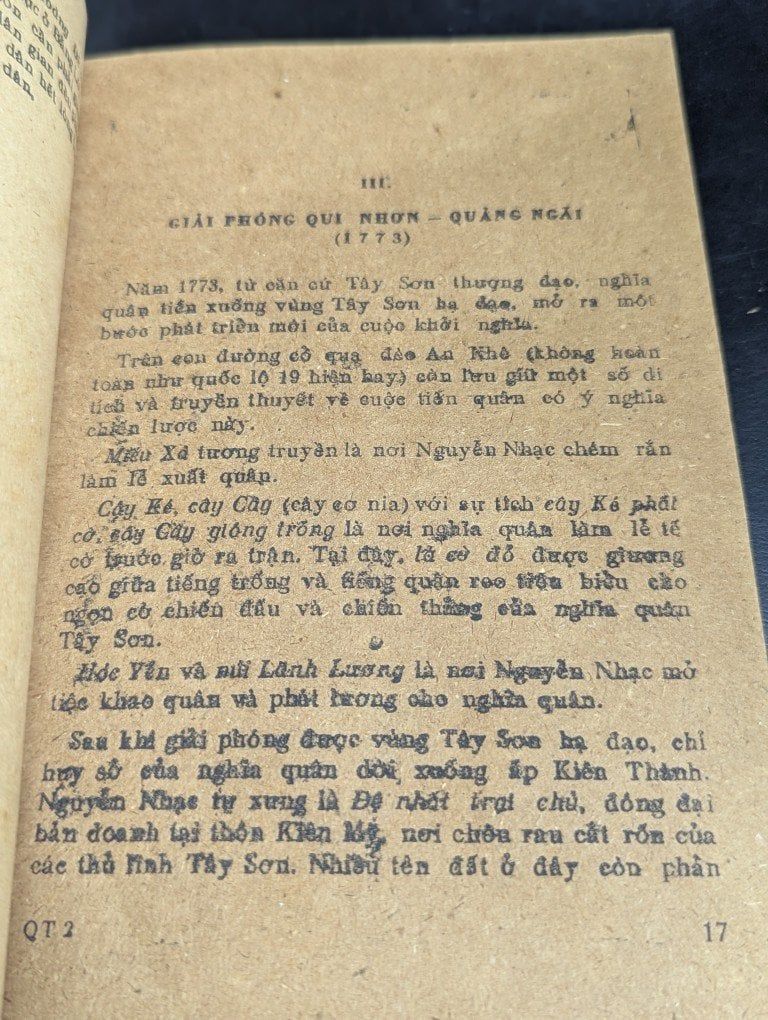 dân.
III.
GIẢI PHÓNG QUI NHƠN — QUẢNG NGÃI
(1773)
Năm 1773, từ căn cứ Tây Sơn thượng đạo, nghĩa
quân tiến xuống vùng Tây Sơn hạ đạo, mở ra một
bước phát triển mới của cuộc khởi nghĩa.
Trên con đường cổ qua đèo An Khê (không hoàn
toàn như quốc lộ 19 hiện hay) còn lưu giữ một số di
tích và truyền thuyết về cuộc tiến quân có ý nghĩa
chiến lược này.
Miếu Xà tương truyền là nơi Nguyễn Nhạc chém rắn
làm lễ xuất quân.
Cây Ké, cây Cầy (cây cơ nia) với sự tích cây Ké phất
cờ, cây Cầy gióng trống là nơi nghĩa quân làm lễ tế
cờ trước giờ ra trận. Tại đây, lá cờ đỏ được giương
cao giữa tiếng trống và tiếng quân reo tiêu biểu cho
ngọn cờ chiến đấu và chiến thắng của nghĩa quân
Tây Sơn.
Hóc Yến và núi Lãnh Lương là nơi Nguyễn Nhạc mở
tiệc khao quân và phát lương cho nghĩa quân.
Sau khi giải phóng được vùng Tây Sơn hạ đạo, chỉ
huy sở của nghĩa quân dời xuống ấp Kiên Thành.
Nguyễn Nhạc tự xưng là Đệ nhất trại chủ, đóng đại
bản doanh tại thôn Kiên Mỹ, nơi chôn rau cắt rốn của
các thủ lĩnh Tây Sơn. Nhiều tên đất ở đây còn phần
QT 2
17